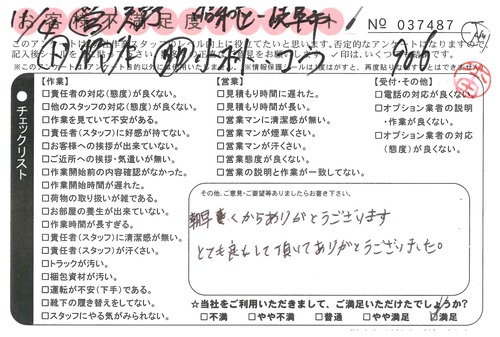 お客様満足度
No 037487
このアンケートは
※このアンケート
チェックリスト
【作業】
□責任者の対応(態度)が良くない。
□他のスタッフの対応(態度)が良くない。
□作業を見ていて不安がある。
□責任者(スタッフ)に好感が持てない。
□お客様への挨拶が出来ていない。
□ご近所への挨拶・気遣いが無い。
□作業開始前の内容確認がなかった。
□作業開始時間が遅れた。
□荷物の取り扱いが雑である。
□お部屋の養生が出来ていない。
□作業時間が長すぎる。
□責任者(スタッフ)に清潔感が無い。
□責任者(スタッフ)が汗くさい。
□トラックが汚い。
□梱包資材が汚い。
□運転が不安(下手)である。
□靴下の履き替えをしてない。
□スタッフにやる気がみられない。
【営業】
□見積もり時間に遅れた。
□見積もり時間が長い。
□営業マンに清潔感が無い。
□営業マンが煙草くさい。
□営業マンが汗くさい。
□営業態度が良くない。
□営業の説明と作業が一致してない。
【受付・その他】
□電話の対応が良くない。
□オプション業者の説明
・作業が良くない。
□オプション業者の対応
(態度)が良くない。
その他、ご意見・ご要望等ありましたらお書き下さい。
朝早くからありがとうございます
とても良くして頂いてありがとうございました。
☆当社をご利用いただきまして、ご満足いただけたでしょうか?
□不満 □やや不満 □普通 □やや満足 □満足